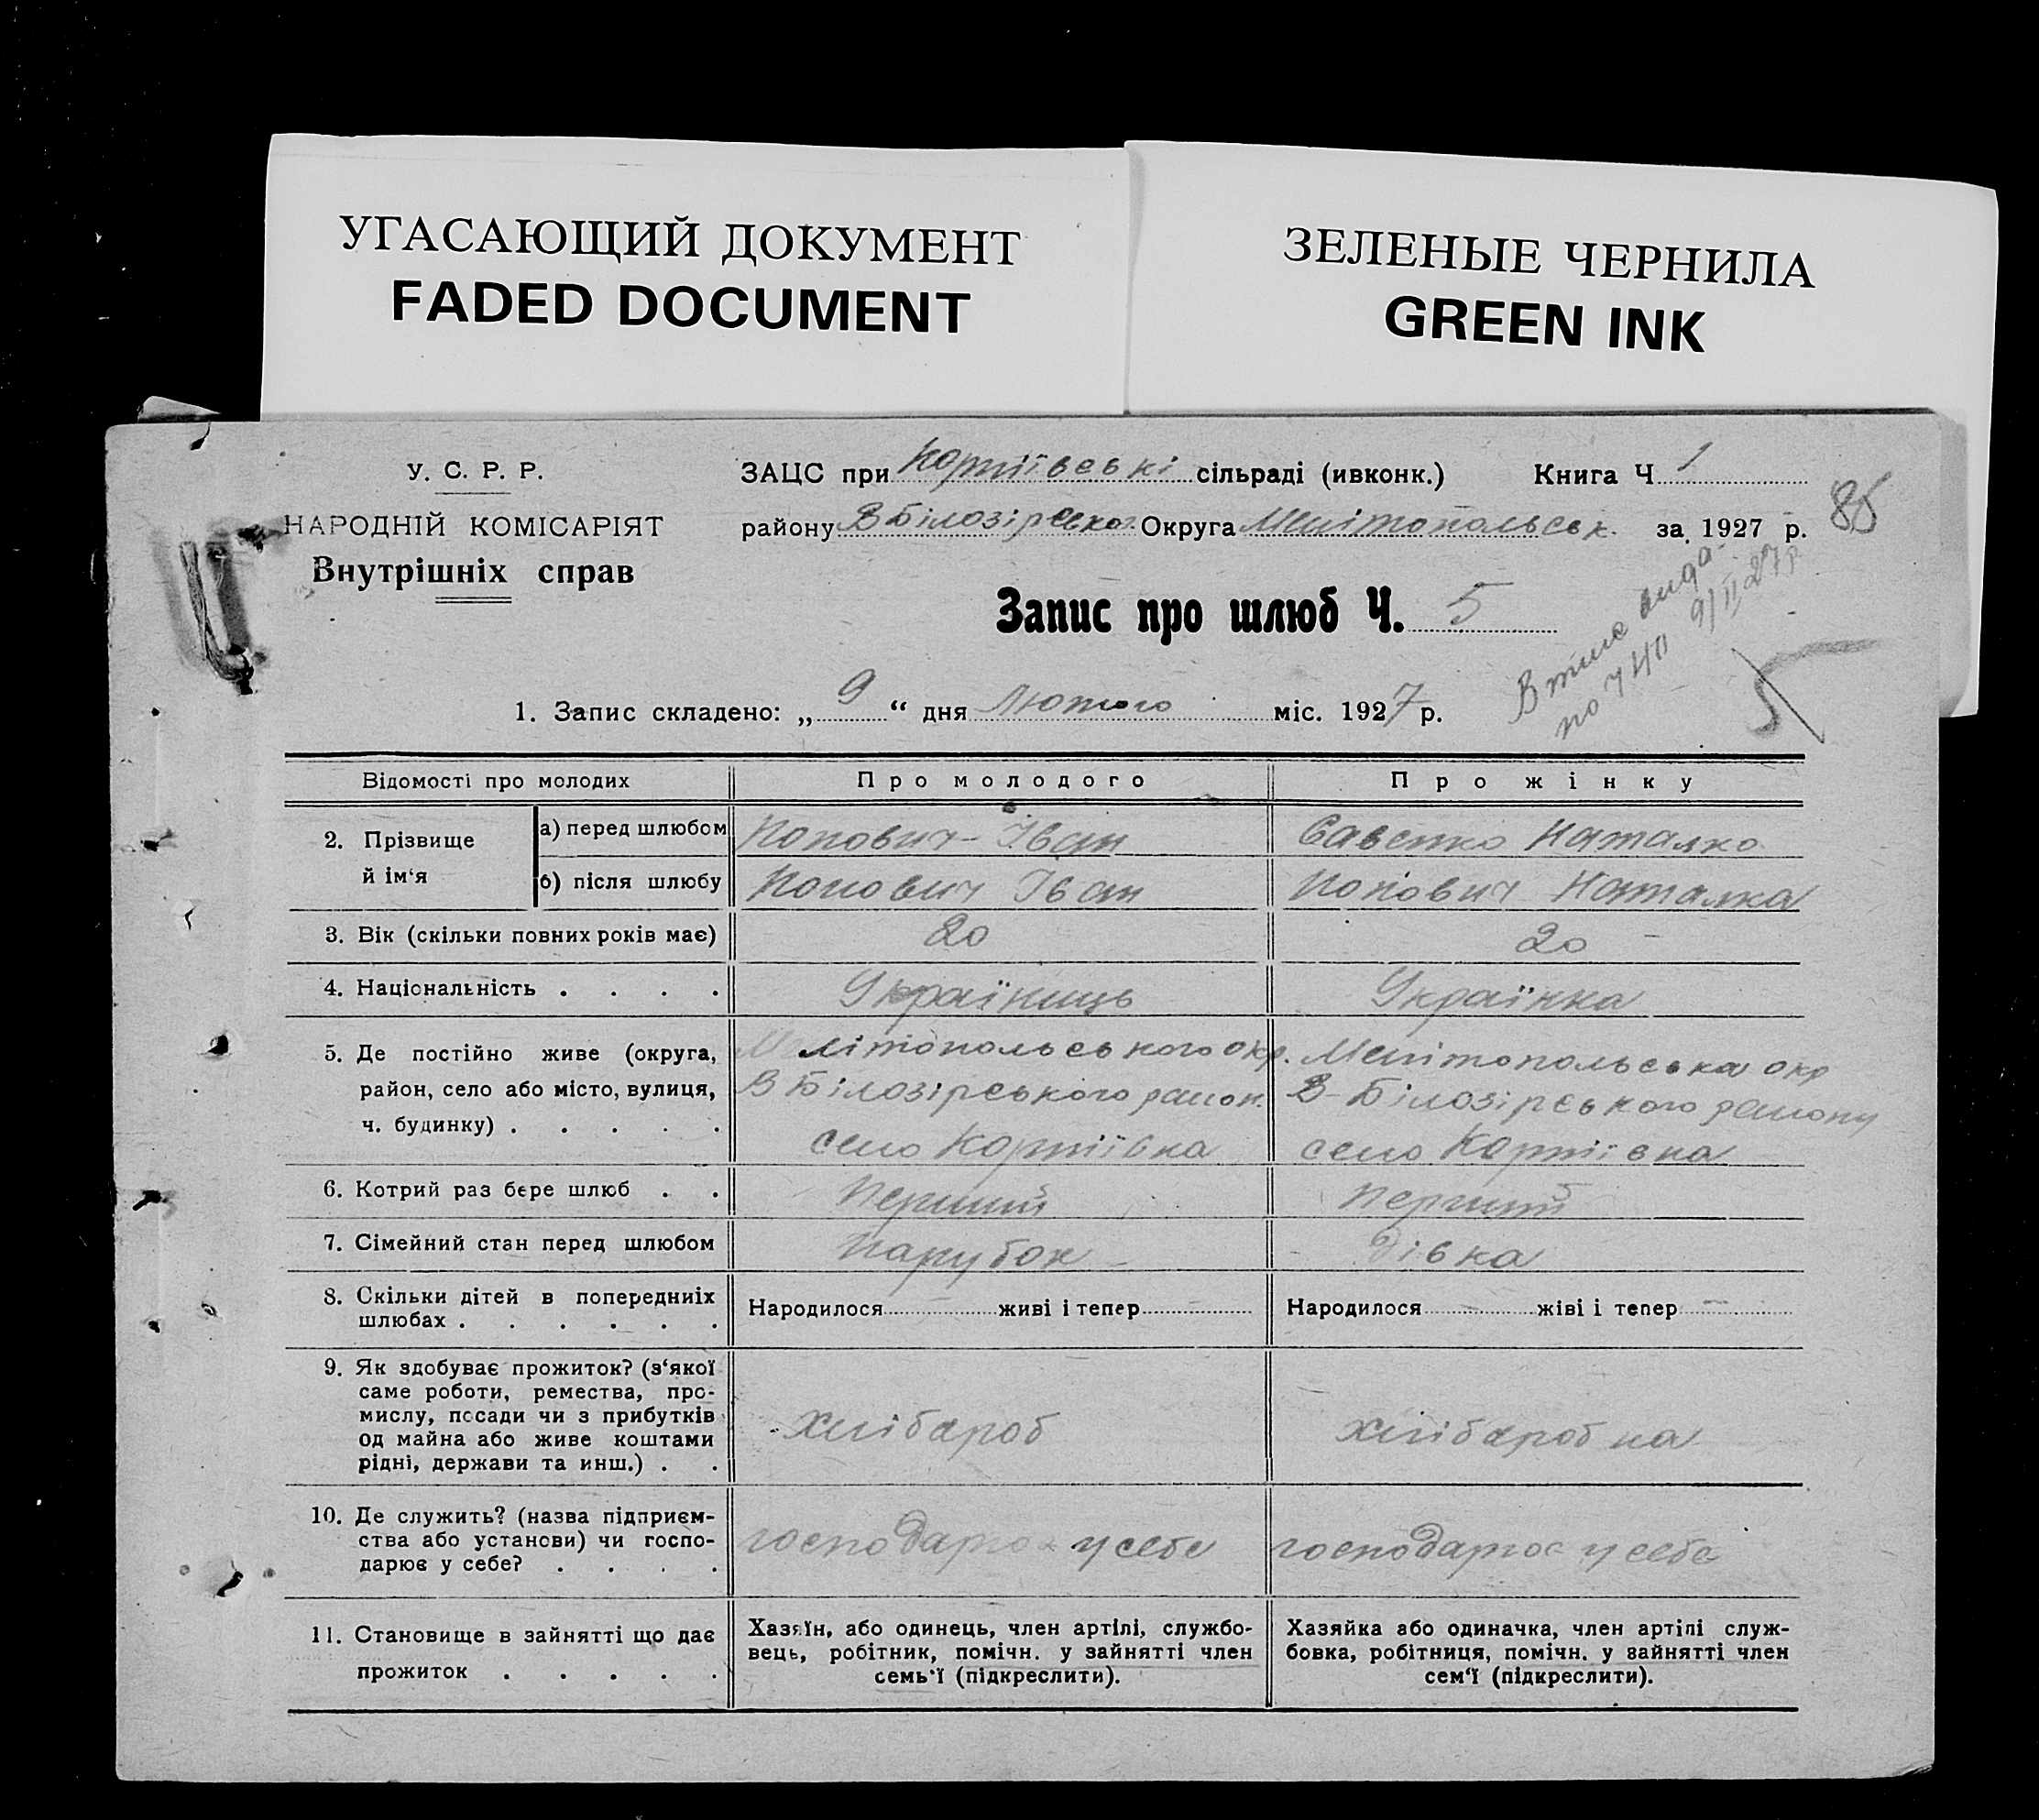 УГАСАЮЩИЙ ДОКУМЕНТ
FADED DOCUMENT
ЗЕЛЕНЫЕ ЧЕРНИЛА
GREEN INK
У. С. Р. Р.
НАРОДНІЙ КОМІСАРІЯТ
Внутрішніх справ
ЗАЦС при Корніївські сільраді (ивконк.) Книга Ч 1
району В Білозірсько. Округа Мелітопольськ. за 1927 р.
85
Запис про шлюб Ч. 5
9/II 27 р
5
1. Запис складено: „ 9 “ дня Лютого міс. 1927 р.
Відомості про молодих Про молодого Про жінку
2. Прізвище й ім‘я
а) перед шлюбом Попович - Іван Савенко Наталко
б) після шлюбу Попович Іван Попович Наталка
3. Вік (скільки повних років має) 20 20 -
4. Національність . . . . Україниць Українка
5. Де постійно живе (округа,
район, село або місто, вулиця,
ч. будинку) . . . . .
Мелітопольського окр.
В Білозірського район.
село Корніївка
Мелітопольська окр
В-Білозірського району
село Корніївка
6. Котрий раз бере шлюб . . Перший Перший
7. Сімейний стан перед шлюбом Парубок - дівка
8. Скільки дітей в попередниіх
шлюбах . . . . . .
Народилося - живі і тепер -
Народилося - жіві і тепер -
9. Як здобуває прожиток? (з‘якої
саме роботи, ремества, про-
мислу, посади чи з прибутків
од майна або живе коштами
рідні, держави та инш.) . .
хлібароб
хлібаробка
10. Де служить? (назва підприєм-
ства або установи) чи госпо-
дарює у себе? . . . .
господарює у себе
господарює у себе
11. Становище в зайнятті що дає
прожиток . . . . .
Хазяїн, або одинець, член артілі, службо-
вець, робітник, помічн. у зайнятті член
семь‘ї (підкреслити).
Хазяйка або одиначка, член артілі служ-
бовка, робітниця, помічн. у зайнятті член
сем‘ї (підкреслити).